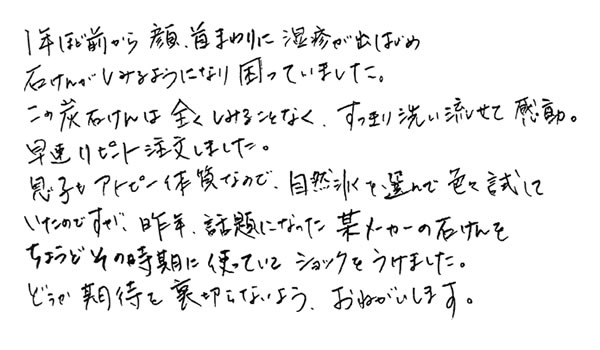 1年ほど前から顔、首まわりに湿疹が出はじめ
石けんがしみるようになり困っていました。
この炭石けんは全くしみることなく、すっきり洗い流せて感動。
早速リピート注文しました。
息子もアトピー体質なので、自然派を選んで色々試して
いたのですが、昨年、話題になった某メーカーの石けんを
ちょうどその時期に使っていてショックをうけました。
どうか期待を裏切らないよう、おねがいします。